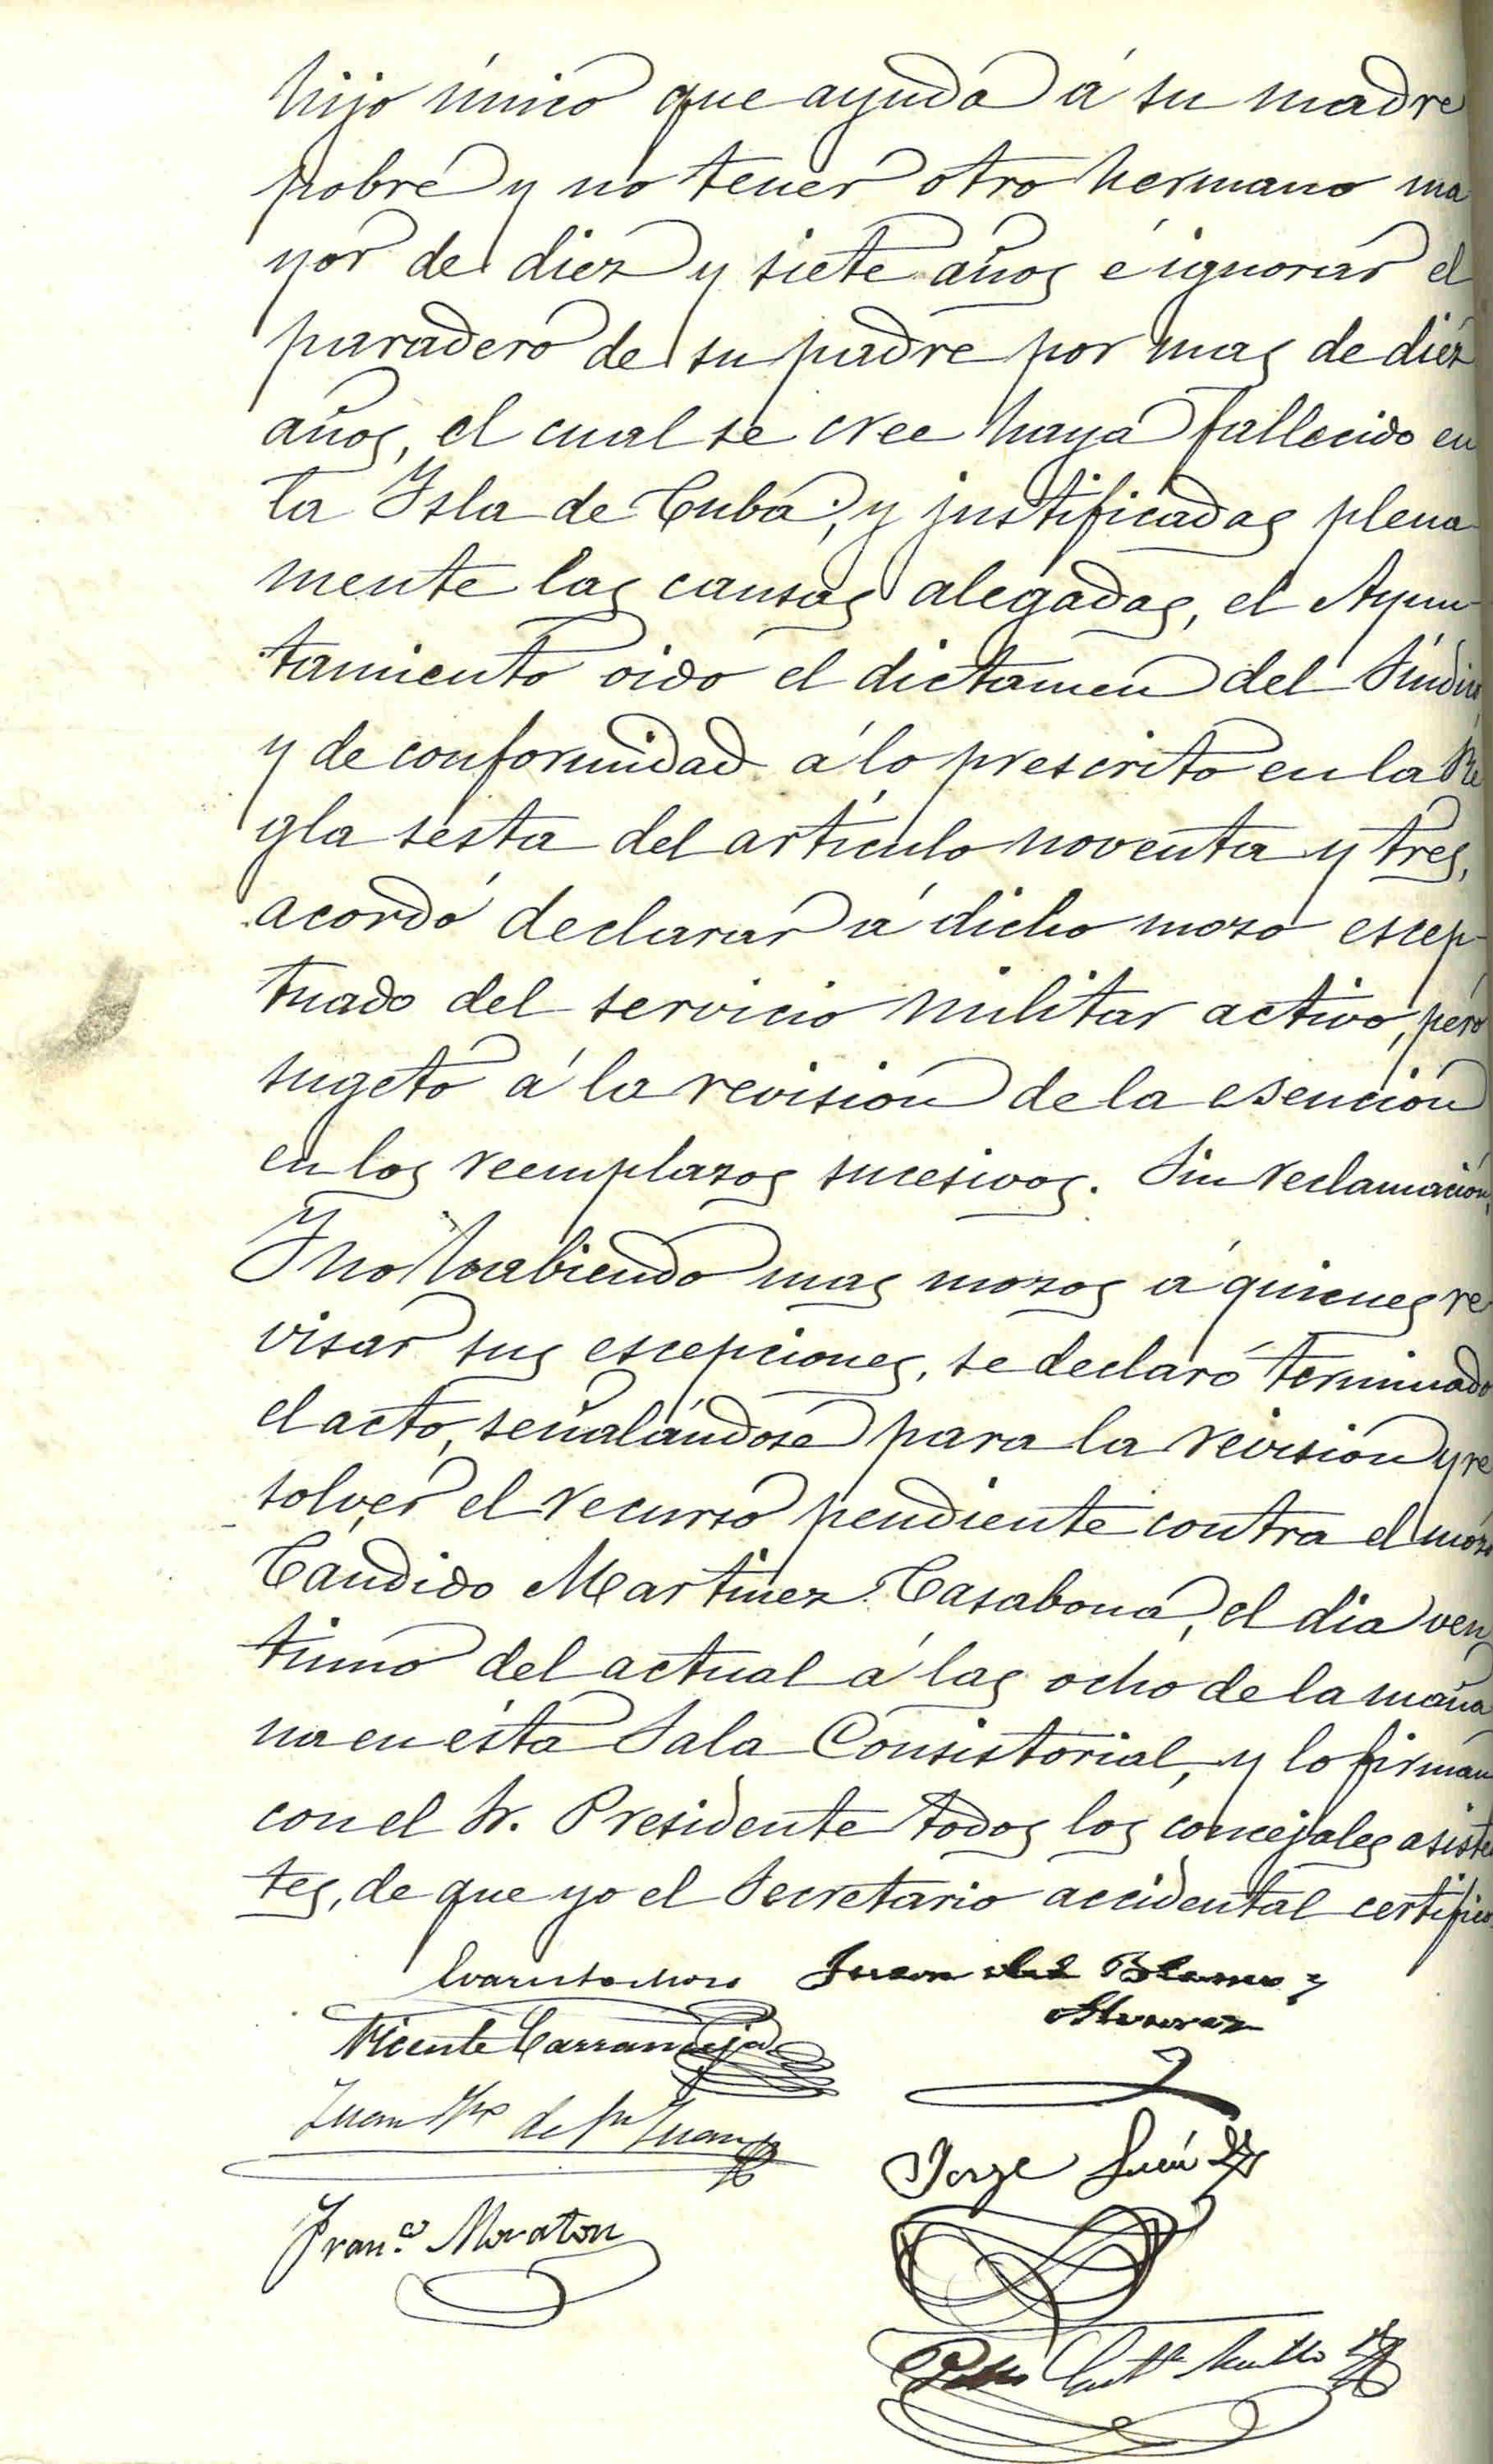 hijo único que ayuda á su madre
pobre y no tener otro hermano ma
yor de diez y siete años é ignorar el
paradero de su padre por mas de diez
años, el cual se cree haya fallecido en
la Isla de Cuba; y justificadas plena
mente las causas alegadas, el Ayun-
tamiento oido el dictamen del Síndico,
y de conformidad á lo prescrito en la Re
gla sesta del artículo noventa y tres,
acordó declarar á dicho mozo escep-
tuado del servicio militar activo, pero
sugeto á la revisión de la esención
en los reemplazos sucesivos. Sin reclamación,
Y no habiendo mas mozos á quienes re
visar sus escepciones, se declaró terminado
el acto, señalándose para la revisión y re
solver el recurso pendiente contra el mozo
Cándido Martinez Casabona, el dia ven
tiuno del actual á las ocho de la maña
na en ésta Sala Consistorial, y lo firman
con el Sr. Presidente todos los concejales asisten
tes, de que yo el Secretario accidental certifico.
Juan Blanco y
Alvarez
Vicente Carranceja
Juan de Juan
Jorge
Fran.co Moraton
Pedro